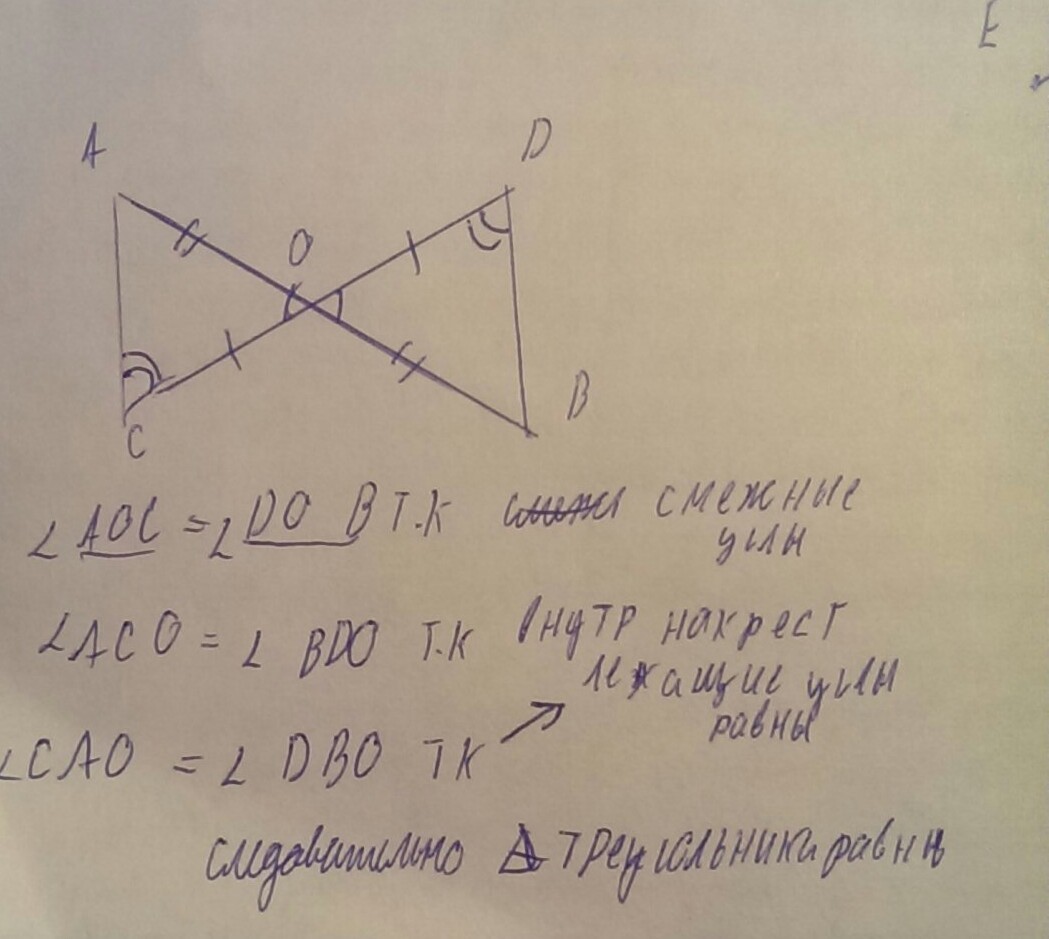 E
A
D
O
B
C
∠ AOC = ∠ DO B Т.К смежные
углы
∠ACO = ∠ BDO Т.К внутр накрест
лежащие углы
равны
∠CAO = ∠ DBO ТК
следовательно Δ треугольники равны